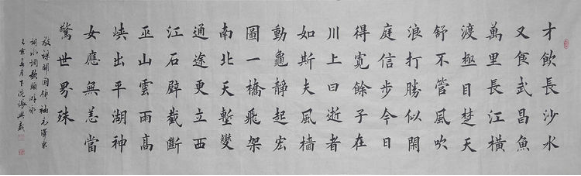 才飲長沙水
又食武昌魚
萬里長江橫
渡極目楚天
舒不管風吹
浪打勝似閒
庭信步今日
得寬餘子在
川上曰逝者
如斯夫風檣
動龜靜起宏
圖一橋飛架
南北天塹變
通途更立西
江石壁截斷
巫山雲雨高
峽出平湖神
女應無恙當
驚世界殊
敬錄開國領袖毛澤東
詞水調歌頭游泳